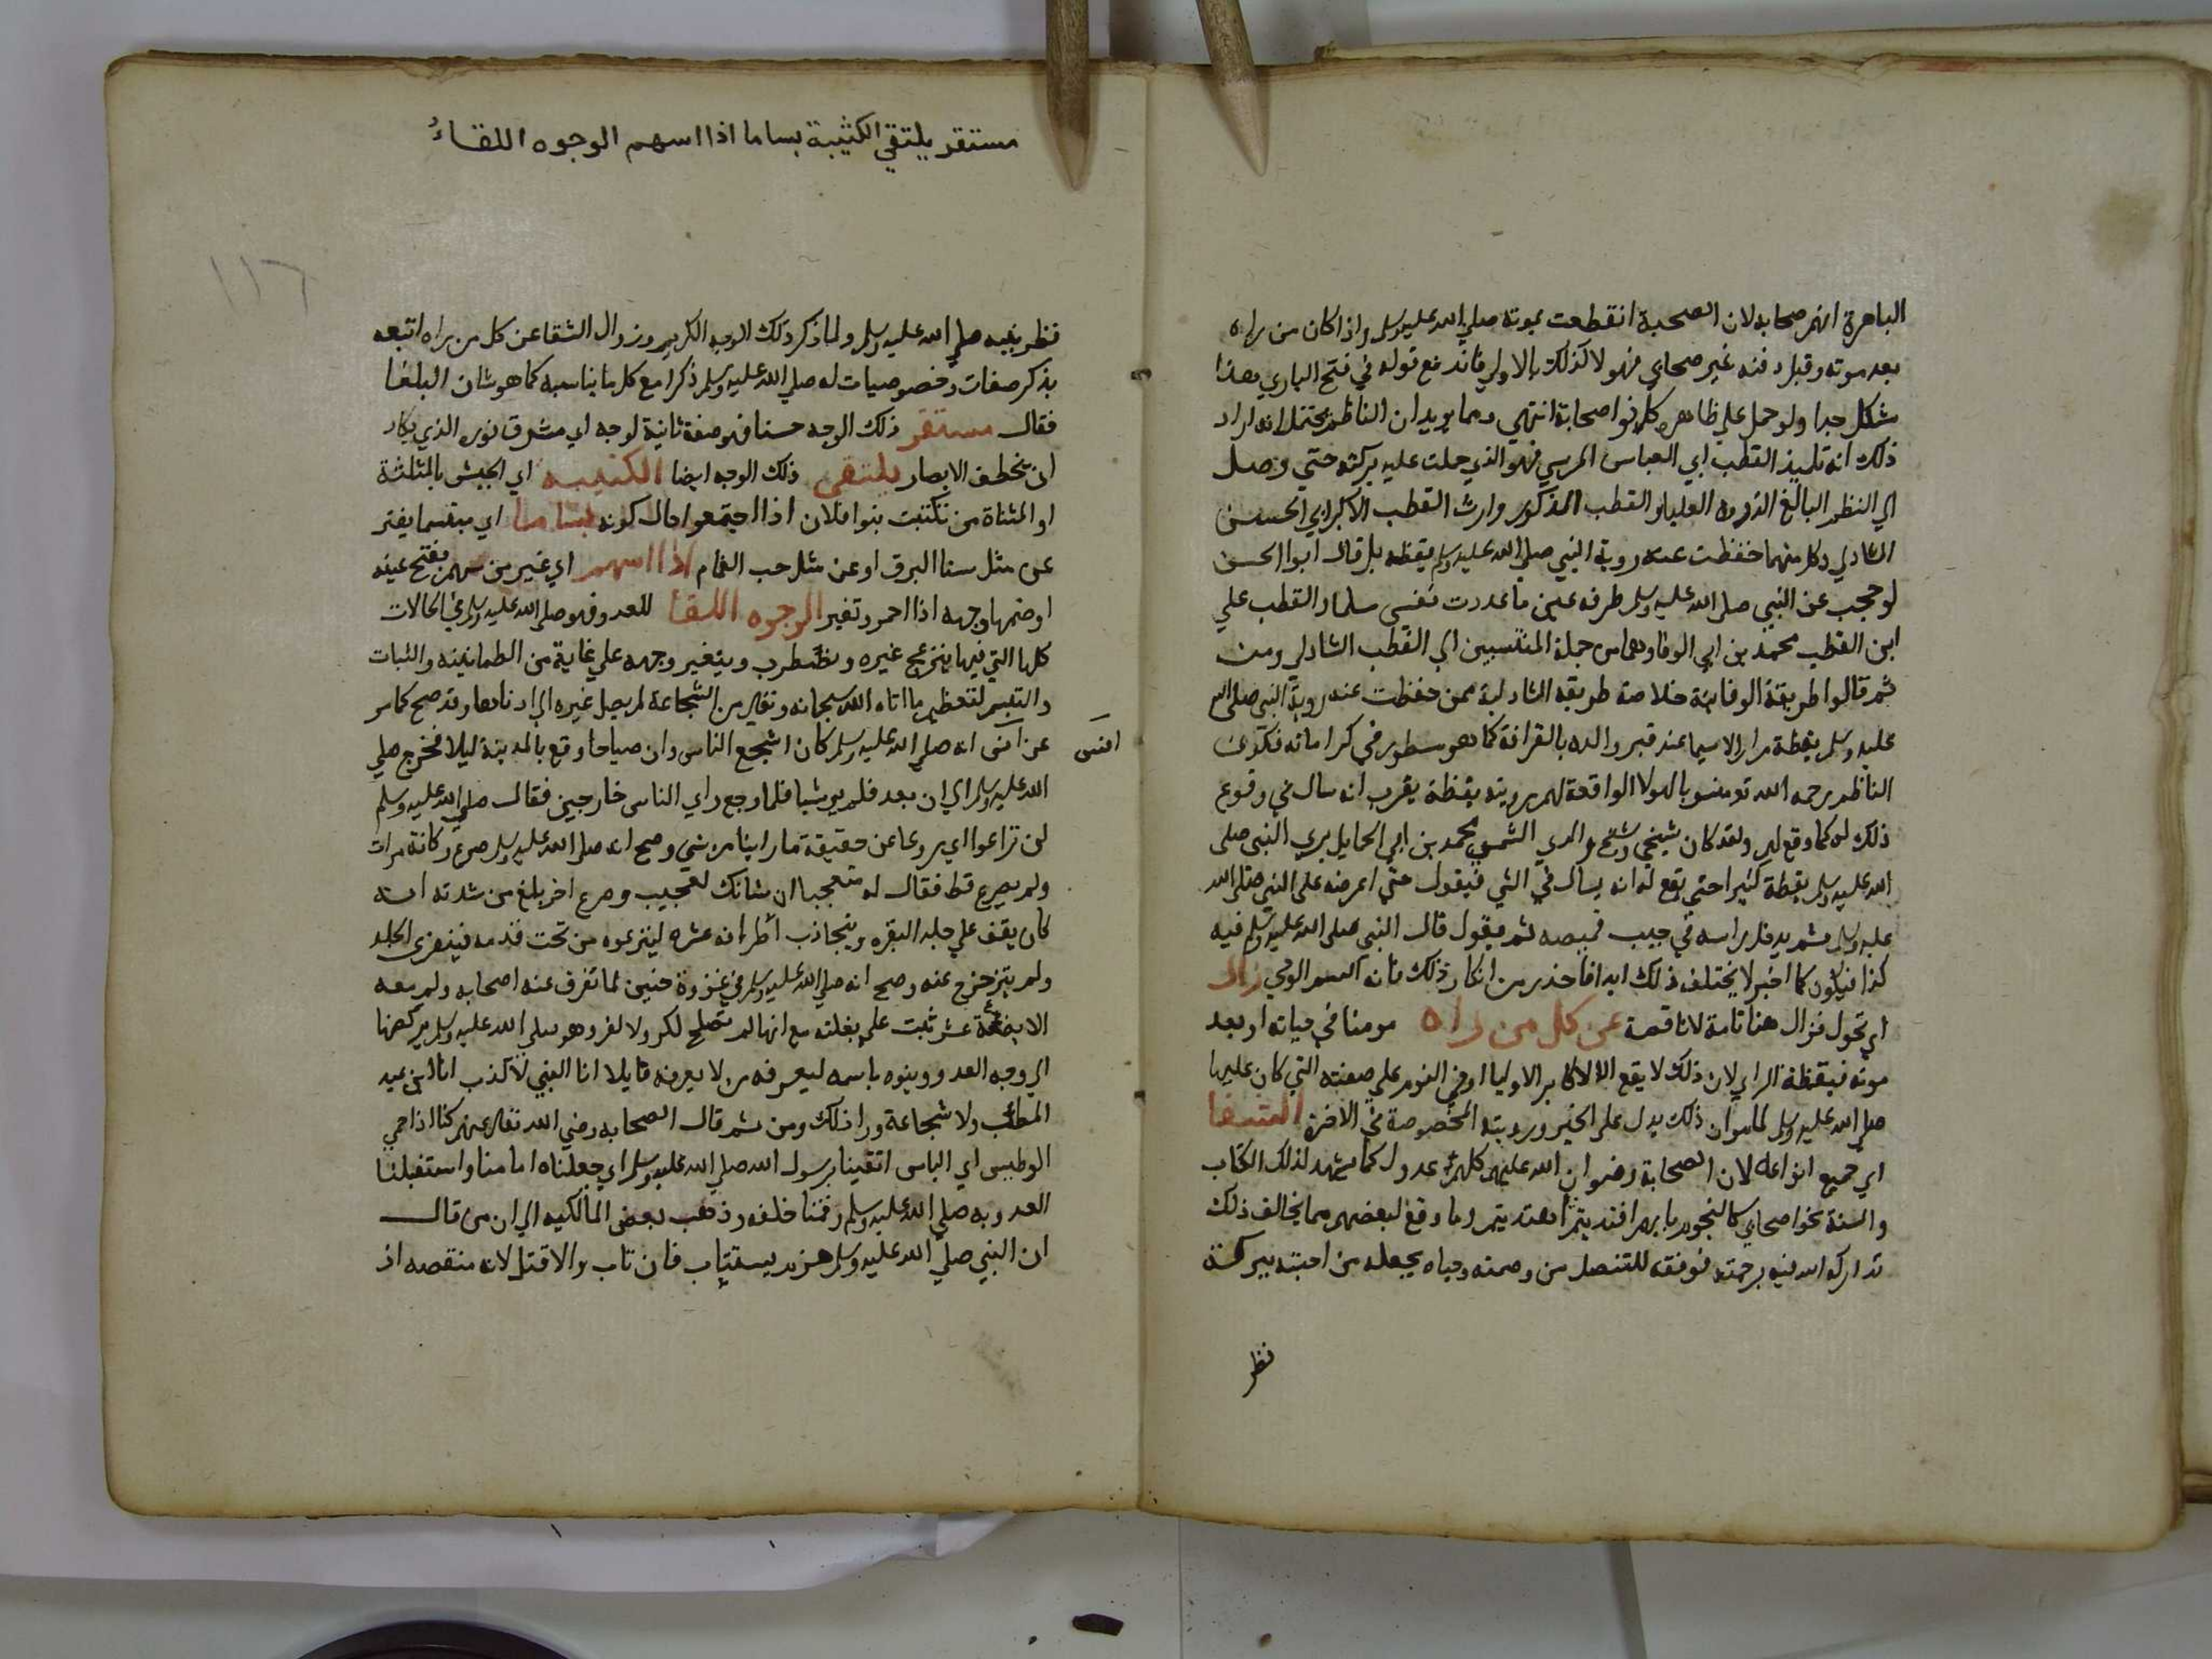 الباهرة انهم صحابه لان الصحبة انقطعت بموته صلي الله عليه وسلم واذا كان من راه
بعد موته وقبل دفنه غير صحابي فهولا كذلك بالاولي فاندفع قوله في فتح الباري وهذا
مشكل جدا ولو حمل علي ظاهره لكانوا صحابة انتهي ومما يويد ان الناظم يحتمل انه اراد
ذلك انه تلميذ القطب ابي العباس المرسي فهو الذي حلت عليه بركته حتي وصل
الي النظم البالغ الذروه العليا والقطب المذكور وارث القطب الاكبر ابي الحسن
الشادلي وكل منهما حفظت عنه روية النبي صلي الله عليه وسلم يقظه بل قال ابوا الحسن
لو حجب عن النبي صلي الله عليه وسلم طرفه عين ما عددت نفسي مسلما والقطب علي
ابن القطب محمد بن ابي الوفا وهما من جملة المنتسبين الي القطب الشادلي ومن
ثم قالوا طريقة الوفائية خلاصة طريقه الشادلية ممن حفظت عنه روية النبي صلي الله
عليه وسلم يقظة مرارا لا سيما عند قبر والده بالقرافة كما هو مسطور في كراماته فتكون
الناظم رحمه الله تع منسوبا لهولا الواقعة لهم رويته يقظة يقرب انه سال في وقوع
ذلك له كما وقع لهم ولقد كان شيخي وشيخ والدي الشمس محمد بن ابي الحمايل يري النبي صلي
الله عليه وسلم يقظة كثيرا حتي يقع له انه يسال في الشي فيقول حتي اعرضه علي النبي صلي الله
عليه وسلم ثم يدخل راسه في جيب قميصه ثم يقول قال النبي صلي الله عليه وسلم فيه
كذا فيكون كما اخبر لا يختلف ذلك ابدا فاحذر من انكار ذلك فانه السم الوحي زال
اي تحول فزال هنا تامة لا ناقصة عن كل من راه مومنا في حياته او بعد
موته فيقظة الراي لان ذلك لا يقع الا لاكابر الاوليا او في النوم علي صفته التي كان عليها
صلي الله عليه وسلم لما مر ان ذلك يدل علي الخير ورويته المخصوصة في الاخرة الشقا
اي جميع انواعه لان الصحابة رضوان الله عليهم كلهم عدول كما يشهد لذلك الكتاب
والسنة نحو اصحابي كالنجوم بايهم اقتديتم اهتديتم وما وقع لبعضهم مما يخالف ذلك
تداركه الله فيه برحمته فوفقه للتنصل من وصمته وحباه بجعله من احبته ببركة
نظر
مستقر يلتقي الكثيبة بساما اذا اسهم الوجوه اللقاءُ
١١٦
نظر نبيه صلي الله عليه وسلم ولما ذكر ذلك الوجه الكريم وزوال الشقا عن كل من راه اتبعه
بذكر صفات وخصوصيات له صلي الله عليه وسلم ذكرا مع كل ما يناسبه كما هو شان البلغا
فقال مستقر ذلك الوجه حسنا فهو صفة ثانية لوجه اي مشرق نوره الذي يكاد
ان يخطف الابصار يلتقي ذلك الوجه ايضا الكتيبه اي الجيش بالمثلثة
او المثناة من تكتبت بنوا فلان اذا اجتمعوا حال كونه بساما اي مبتسما يفتر
عن مثل سنا البرق او عن مثل حب الغمام اذا اسهم اي غير من سهم بفتح عينه
او ضمها وجهه اذا احمر وتغير الوجوه اللقا للعدو فهو صلي الله عليه وسلم في الحالات
كلها التي فيها ينزعج غيره ويضطرب ويتغير وجهه علي غاية من الطمانينه والثبات
والتبسم لتعظيم ما اتاه الله سبحانه وتعالي من الشجاعة لم يصل غيره الي ادناها وقد صح كما مر
عن انس انه صلي الله عليه وسلم كان اشجع الناس وان صياحا وقع بالمدينة ليلا فخرج صلي
انس
الله عليه وسلم الي ان بعد فلم ير شيا فلما رجع راي الناس خارجين فقال صلي الله عليه وسلم
لن تراعوا اي روعا عن حقيقة ما راينا من شي وصح انه صلي الله عليه وسلم صرع ركانة مرات
ولم يصرع قط فقال له متعجبا ان شانك لعجيب وصرع اخر بلغ من شدته انه
كان يقف علي جلد البقره ويتجاذب اطرافه عشره لينزعوه من تحت قدمه فيتفري الجلد
ولم يتزحزح عنه وصح انه صلي الله عليه وسلم في غزوة حنين لما تفرق عنه اصحابه ولم يبق معه
الا بضعة عشر ثبت علي بغلته مع انها لم تصلح لكر ولا لفر وهو صلي الله عليه وسلم يركضها
الي وجه العدو وينوه باسمه ليعرفه من لا يعرفه قايلا انا النبي لا كذب انا ابن عبد
المطلب ولا شجاعة ورا ذلك ومن ثم قال الصحابه رضي الله تعالي عنهم كنا اذا حمي
الوطيس اي الباس اتقينا برسول الله صلي الله عليه وسلم اي جعلناه امامنا واستقبلنا
العدو به صلي الله عليه وسلم وقمنا خلفه وذهب بعض المالكيه الي ان من قال
ان النبي صلي الله عليه وسلم هزم يستتاب فان تاب والا قتل لانه منقصه اذ